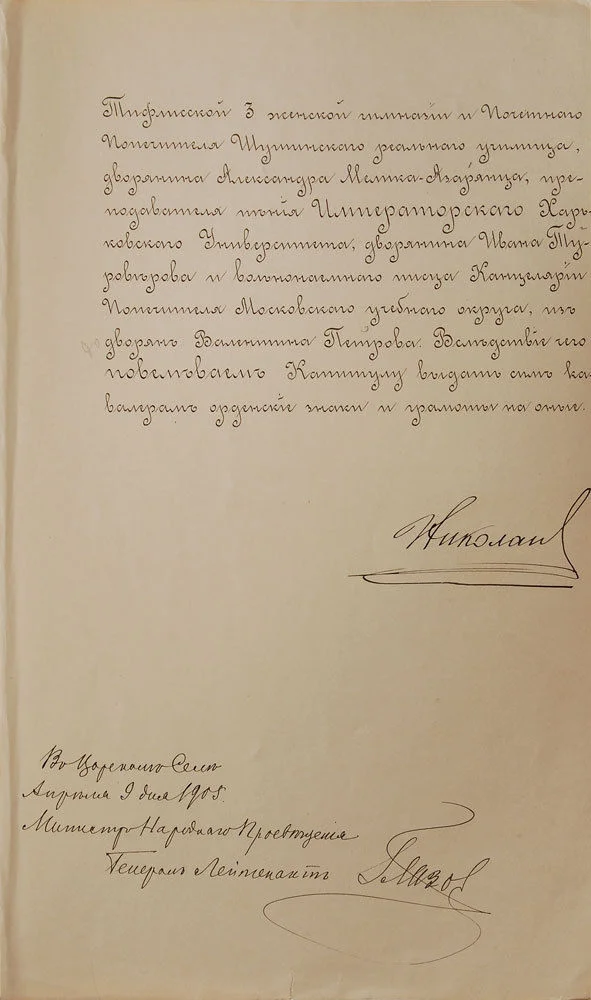 Тифлисской 3 женской гимназіи и Почетнаго
Попечителя Шушинскаго реальнаго училища,
дворянина Александра Мелика-Азарянца, пре-
подавателя пѣнія Императорскаго Харь-
ковскаго Университета, дворянина Ивана Ту-
ровѣрова и вольнонаемнаго писца Канцеляріи
Попечителя Московскаго учебнаго округа, изъ
дворянъ Валентина Петрова. Вслѣдствіе чего
повелѣваемъ Капитулу выдать симъ ка-
валерамъ орденскіе знаки и грамоты на оные.
Николай
Въ Царскомъ Селѣ
Апрѣля 9 дня 1905.
Министръ Народнаго Просвѣщенія
Генералъ Лейтенантъ Глазовъ